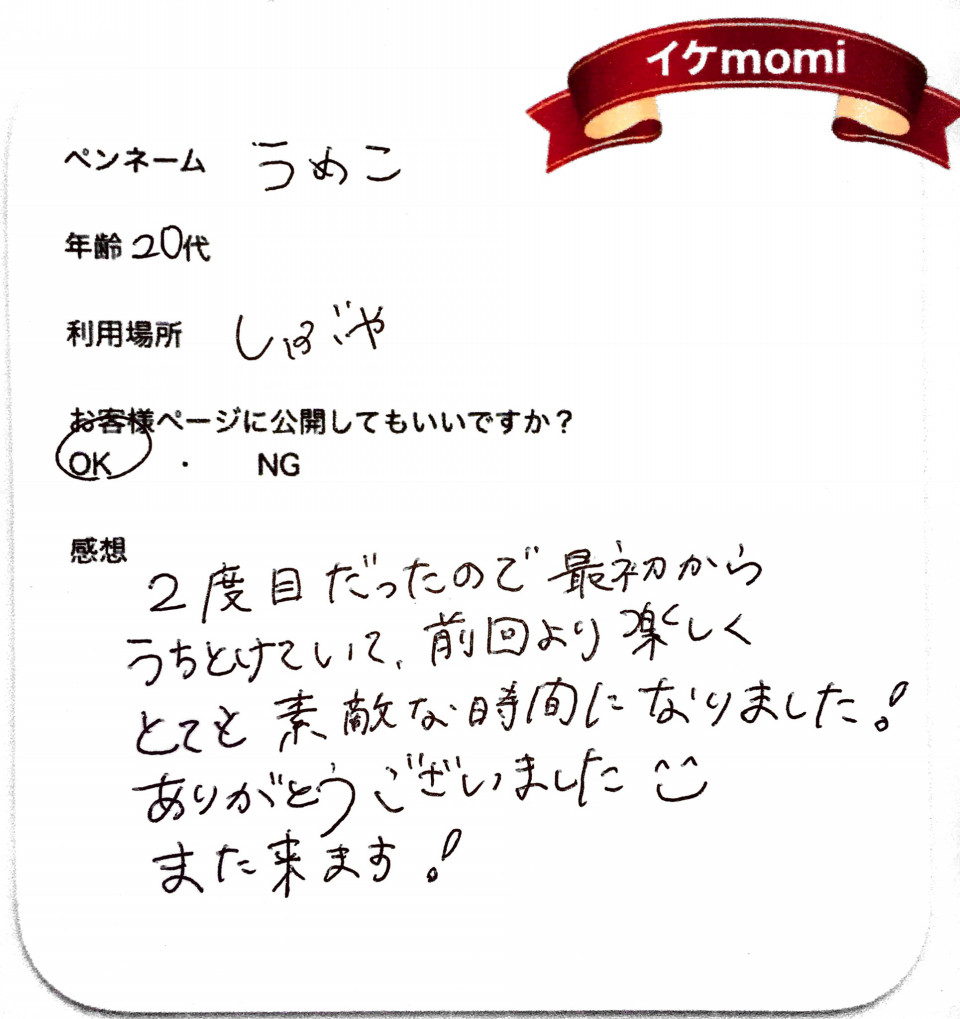 イケmomi
ペンネーム うめこ
年齢 20代
利用場所 しぶや
お客様ページに公開してもいいですか？
OK ・ NG
感想
2度目だったので最初から
うちとけていて、前回より楽しく
とても素敵な時間になりました！
ありがとうございました^^
また来ます！